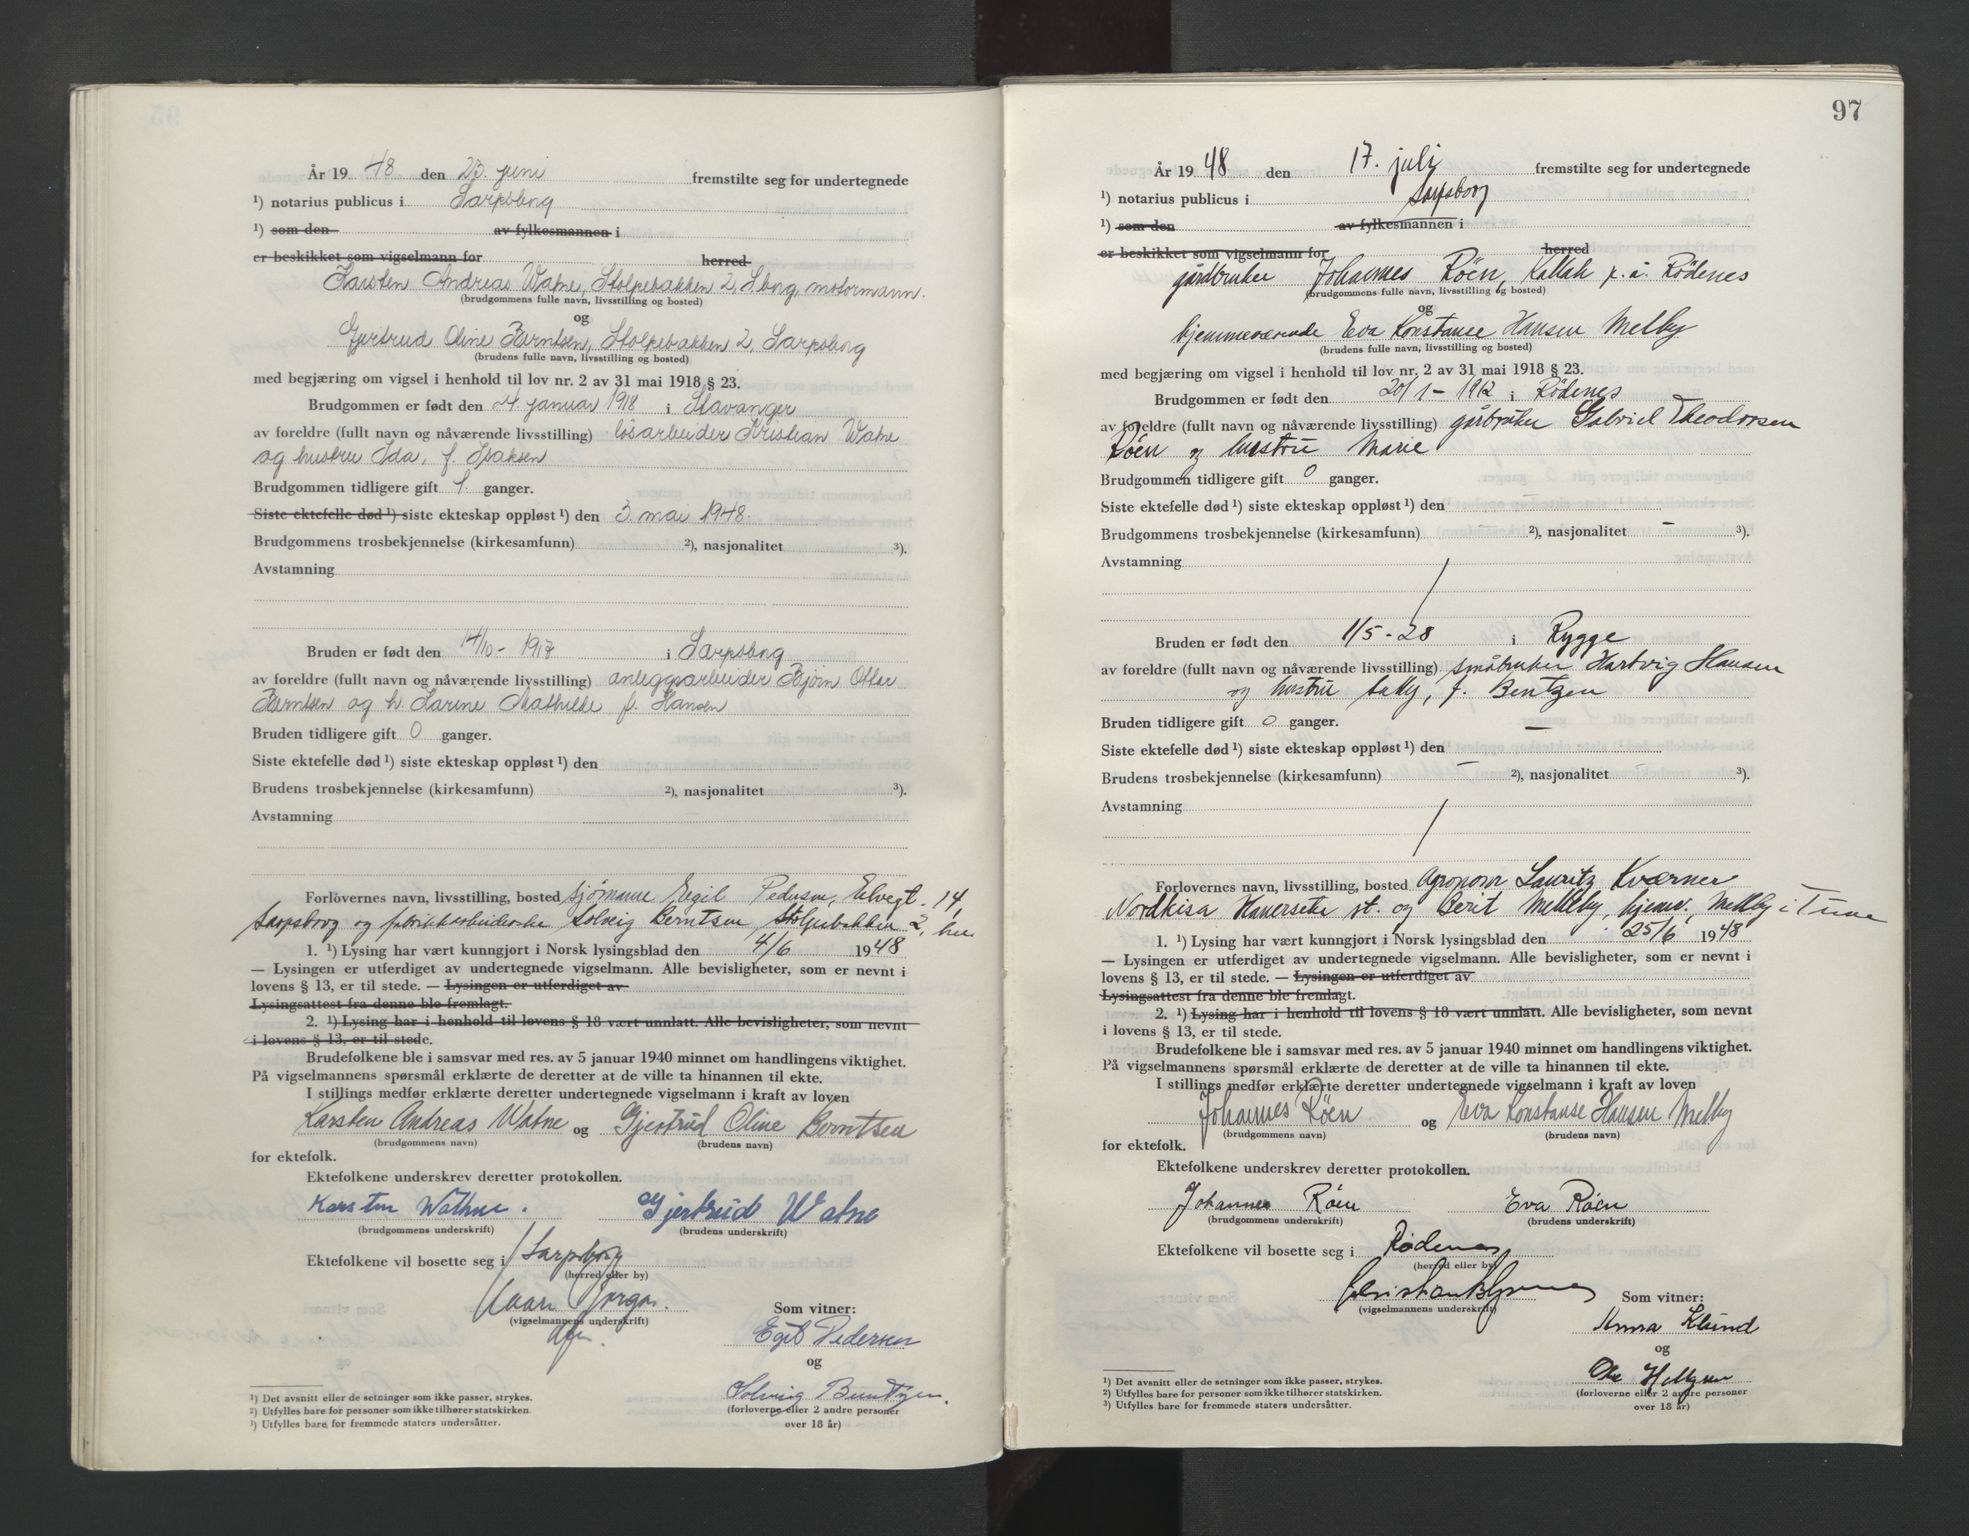 År 19 48 den 23. juni fremstilte seg for undertegnede
¹) notarius publicus i Sarpsborg
¹) som den av fylkesmannen i
er beskikket som vigselmann for herred
Karsten Andreas Watne, Stolpebakken 2, S.borg, motormann.
(brudgommens fulle navn, livsstilling og bosted)
og
Gjertrud Oline Berntsen, Stolpebakken 2, Sarpsborg
(brudens fulle navn, livsstilling og bosted)
med begjæring om vigsel i henhold til lov nr. 2 av 31 mai 1918 § 23.
Brudgommen er født den 24 januar 1918 i Stavanger
av foreldre (fullt navn og nåværende livsstilling) løsarbeider Kristian Watne
og hustru Ida, f. Isaksen
Brudgommen tidligere gift 1. ganger.
Siste ektefelle død ¹) siste ekteskap oppløst ¹) den 3. mai 1948.
Brudgommens trosbekjennelse (kirkesamfunn) ²), nasjonalitet ³).
Avstamning
Bruden er født den 14/10 - 1917 i Sarpsborg
av foreldre (fullt navn og nåværende livsstilling) anleggsarbeider Bjørn Ottar
Berntsen og h. Sarine Mathilde f. Hansen
Bruden tidligere gift 0 ganger.
Siste ektefelle død ¹) siste ekteskap oppløst ¹) den
Brudens trosbekjennelse (kirkesamfunn) ²), nasjonalitet ³).
Avstamning
Forlovernes navn, livsstilling, bosted sjømann Egil Pedersen, Elvegt. 14,
Sarpsborg og fabrikkarbeiderske Solveig Berntsen, Stolpebakken 2, her
1. ¹) Lysing har vært kunngjort i Norsk lysingsblad den 4/6 1948
— Lysingen er utferdiget av undertegnede vigselmann. Alle bevisligheter, som er nevnt i
lovens § 13, er til stede. — Lysingen er utferdiget av
Lysingsattest fra denne ble fremlagt.
2. ¹) Lysing har i henhold til lovens § 18 vært unnlatt. Alle bevisligheter, som nevnt
i lovens § 13, er til stede.
Brudefolkene ble i samsvar med res. av 5 januar 1940 minnet om handlingens viktighet.
På vigselmannens spørsmål erklærte de deretter at de ville ta hinannen til ekte.
I stillings medfør erklærte deretter undertegnede vigselmann i kraft av loven
Karsten Andreas Watne og Gjertrud Oline Berntsen
(brudgommens navn) (brudens navn)
for ektefolk.
Ektefolkene underskrev deretter protokollen.
Karsten Wathne. Gjertrud Watne
(brudgommens underskrift) (brudens underskrift)
Ektefolkene vil bosette seg i Sarpsborg
(herred eller by)
Som vitner:
(vigselmannens underskrift)
Egil Pedersen
og
Solveig Berntzen.
(forloverne eller 2 andre personer
over 18 år)
¹) Det avsnitt eller de setninger som ikke passer, strykes.
²) Utfylles bare for personer som ikke tilhører statskirken.
³) Utfylles bare for fremmede staters undersåtter.
97
År 19 48 den 17. juli fremstilte seg for undertegnede
¹) notarius publicus i Sarpsborg
¹) som den av fylkesmannen i
er beskikket som vigselmann for herred
gårdbruker Johannes Röen, Kallak p. å. Rödenes
(brudgommens fulle navn, livsstilling og bosted)
og
hjemmeværende Eva Konstanse Hansen Melby
(brudens fulle navn, livsstilling og bosted)
med begjæring om vigsel i henhold til lov nr. 2 av 31 mai 1918 § 23.
Brudgommen er født den 20/1 - 1912 i Rödenes
av foreldre (fullt navn og nåværende livsstilling) gårbruker Gabriel Theodorsen
Röen og hustru Marie
Brudgommen tidligere gift 0 ganger.
Siste ektefelle død ¹) siste ekteskap oppløst ¹) den —
Brudgommens trosbekjennelse (kirkesamfunn) — ²), nasjonalitet — ³).
Avstamning
Bruden er født den 1/5 - 28 i Rygge
av foreldre (fullt navn og nåværende livsstilling) småbruker Hartvig Hansen
og hustru Sally, f. Bentzen
Bruden tidligere gift 0 ganger.
Siste ektefelle død ¹) siste ekteskap oppløst ¹) den —
Brudens trosbekjennelse (kirkesamfunn) — ²), nasjonalitet — ³).
Avstamning
Forlovernes navn, livsstilling, bosted Agronom Lauritz Kværner
Nordkisa Hauerseter st. og Berit Mellby, hjemv., Mellby i Tune
1. ¹) Lysing har vært kunngjort i Norsk lysingsblad den 25/6 1948
— Lysingen er utferdiget av undertegnede vigselmann. Alle bevisligheter, som er nevnt i
lovens § 13, er til stede. — Lysingen er utferdiget av
Lysingsattest fra denne ble fremlagt.
2. ¹) Lysing har i henhold til lovens § 18 vært unnlatt. Alle bevisligheter, som nevnt
i lovens § 13, er til stede.
Brudefolkene ble i samsvar med res. av 5 januar 1940 minnet om handlingens viktighet.
På vigselmannens spørsmål erklærte de deretter at de ville ta hinannen til ekte.
I stillings medfør erklærte deretter undertegnede vigselmann i kraft av loven
Johannes Röen og Eva Konstanse Hansen Melby
(brudgommens navn) (brudens navn)
for ektefolk.
Ektefolkene underskrev deretter protokollen.
Johannes Röen Eva Röen
(brudgommens underskrift) (brudens underskrift)
Ektefolkene vil bosette seg i Rødenes
(herred eller by)
Som vitner:
(vigselmannens underskrift)
Anna Klund
og
(forloverne eller 2 andre personer
over 18 år)
¹) Det avsnitt eller de setninger som ikke passer, strykes.
²) Utfylles bare for personer som ikke tilhører statskirken.
³) Utfylles bare for fremmede staters undersåtter.